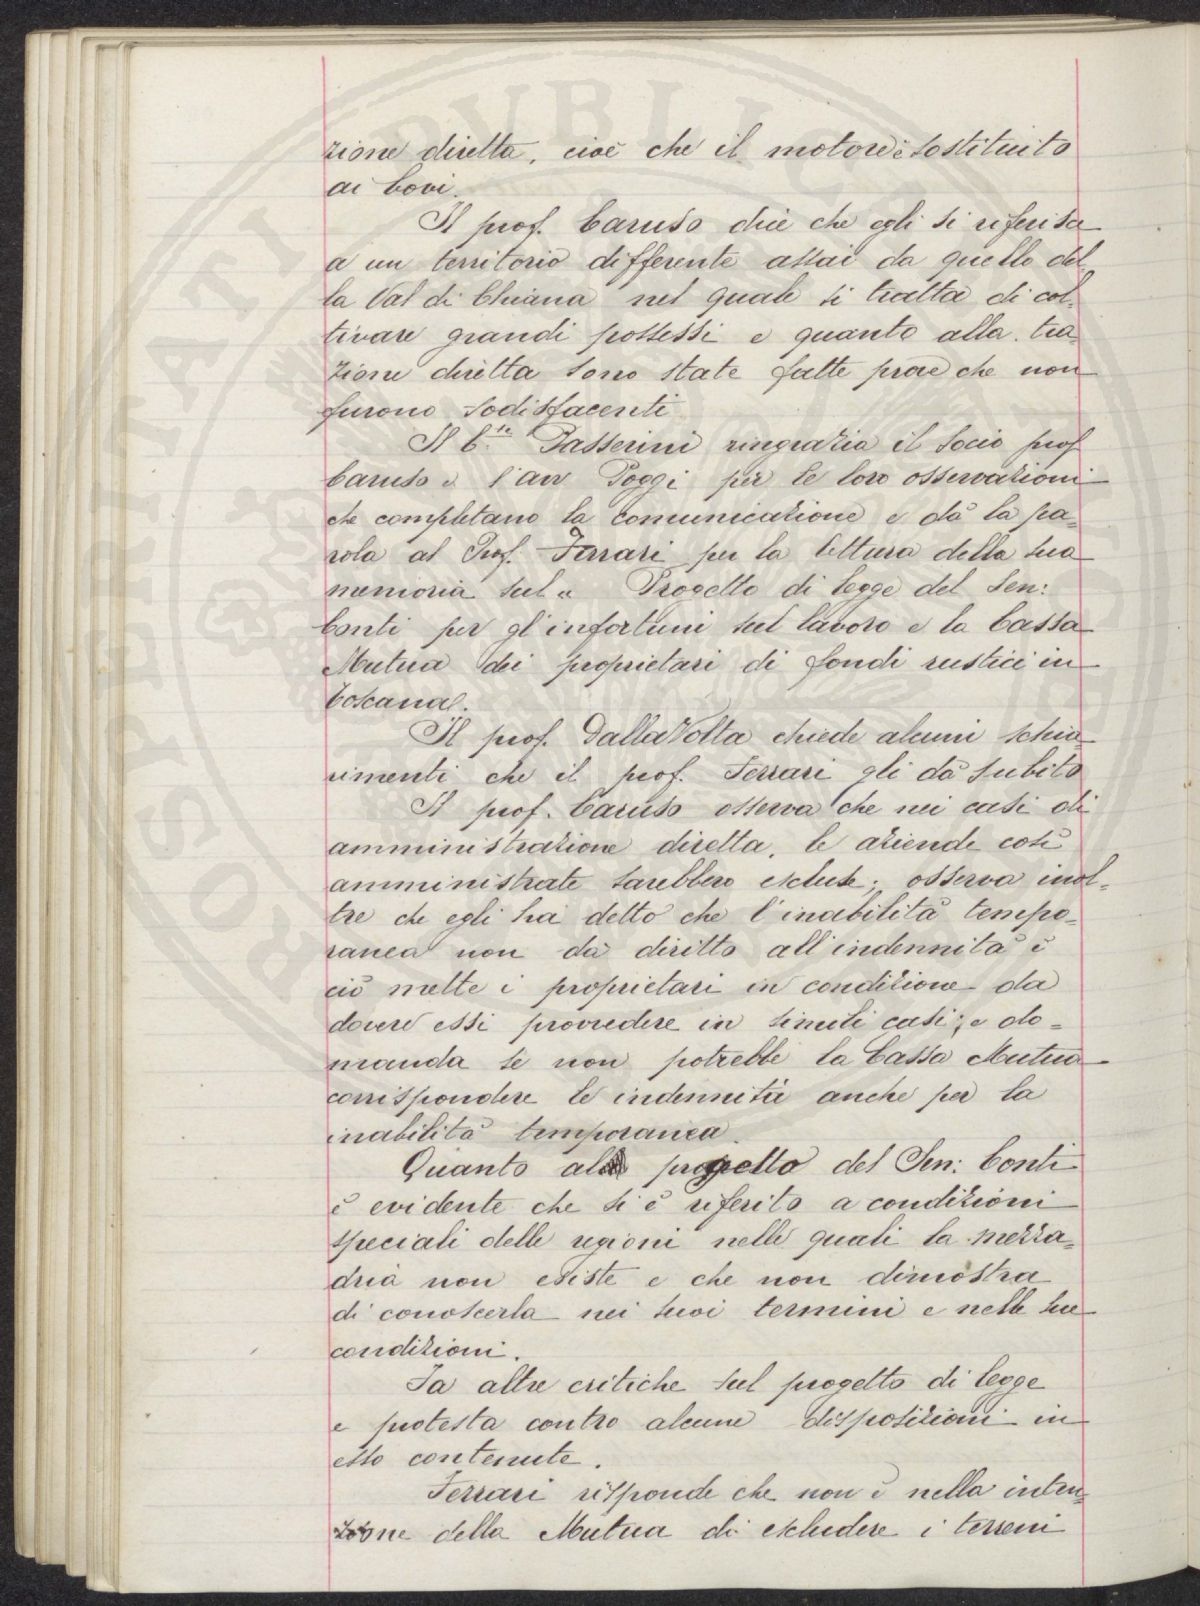 zione diretta, cioè che il motore è sostituito
ai bovi.
Il prof. Caruso dice che egli si riferisce
a un territorio differente assai da quello del-
la Val di Chiana nel quale si tratta di col-
tivare grandi possessi e quanto alla tra-
zione diretta sono state fatte prove che non
furono sodisfacenti
Il C.te Passerini ringrazia il socio prof.
Caruso e l'avv Poggi per le loro osservazioni
che completano la comunicazione e dà la pa-
rola al Prof. Ferrari per la lettura della sua
memoria sul « Progetto di legge del Sen:
Conti per gl'infortuni sul lavoro e la Cassa
Mutua dei proprietari di fondi rustici in
Toscana».
Il prof. Dalla Volta chiede alcuni schia-
rimenti che il prof. Ferrari gli dà subito
Il prof. Caruso osserva che nei casi di
amministrazione diretta, le aziende così
amministrate sarebbero escluse; osserva inol-
tre che egli ha detto che l'inabilità tempo-
ranea non dà diritto all'indennità e
ciò mette i proprietari in condizione da
dovere essi provvedere in simili casi; e do-
manda se non potrebbe la Cassa Mutua
corrispondere le indennità anche per la
inabilità temporanea.
Quanto al progetto del Sen: Conti
è evidente che si è riferito a condizioni
speciali delle regioni nelle quali la mezza-
dria non esiste e che non dimostra
di conoscerla nei suoi termini e nelle sue
condizioni.
Fa altre critiche sul progetto di legge
e protesta contro alcune disposizioni in
esso contenute.
Ferrari risponde che non è nella inten-
zione della Mutua di escludere i terreni